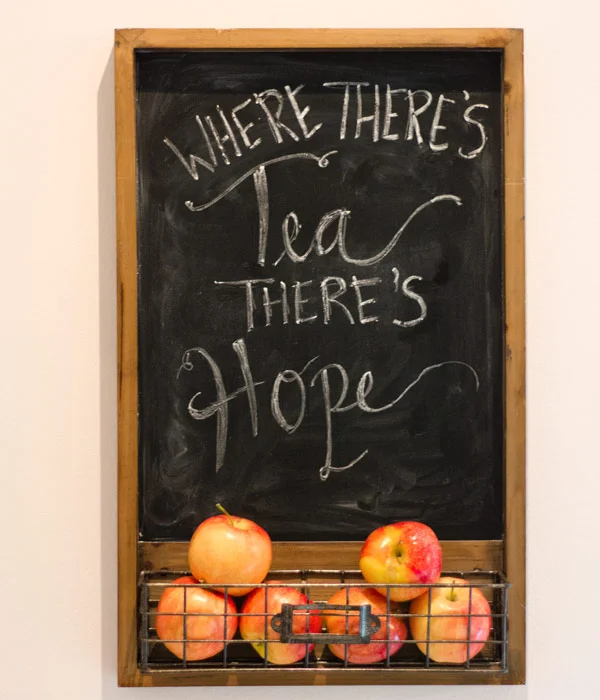 WHERE THERE'S
Tea
THERE'S
Hope